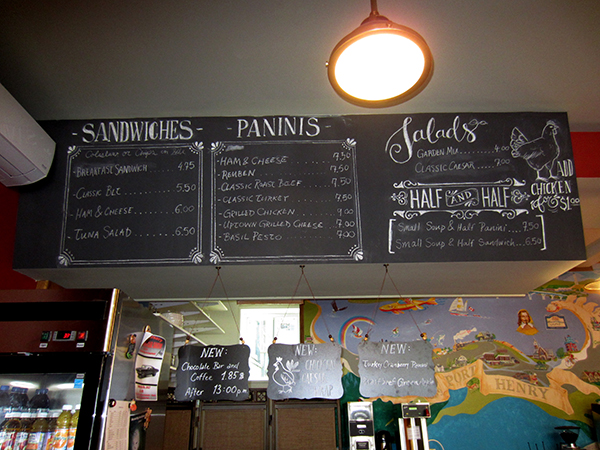 - SANDWICHES -
Coleslaw or Chips in
BREAKFAST SANDWICH 4.75
CLASSIC BLT 5.50
HAM & CHEESE 6.00
TUNA SALAD 6.50
- PANINIS -
HAM & CHEESE 7.50
REUBEN 7.50
CLASSIC ROAST BEEF 7.50
CLASSIC TURKEY 7.50
GRILLED CHICKEN 9.00
UPTOWN GRILLED CHEESE 7.00
BASIL PESTO 7.00
Salads
GARDEN MIX 6.00
CLASSIC CAESAR 7.00
ADD
CHICKEN
$1.00
HALF AND HALF
Small Soup & Half Panini 7.50
Small Soup & Half Sandwich 6.50
NEW:
Chocolate Bar and
Coffee 1.85$
After 13:00pm
NEW:
CHICKEN
CAESAR
NEW:
Turkey Cranberry Panini
PORT HENRY